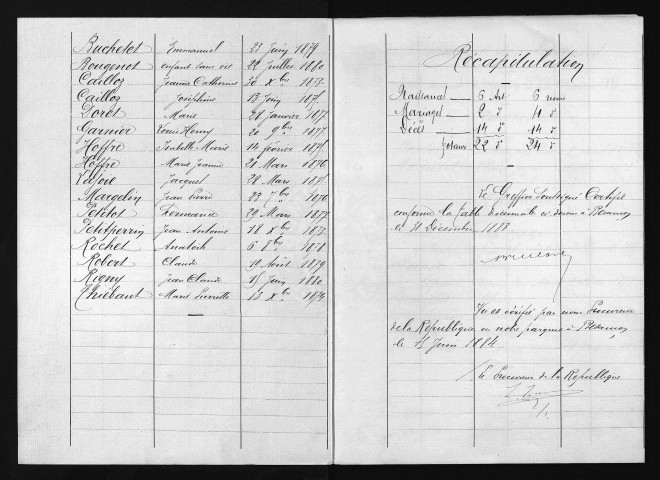 Buchelet Emmanuel 23 Juin 1879
Bougenot enfant sans vie 22 Juillet 1880
Cailloz Jeanne Catherine 30 Xbre 1873
Cailloz Joséphine 13 Juin 1875
Doret Marie 28 Janvier 1877
Garnier Louis Henry 20 9bre 1877
Hoffre Isabelle Marie 14 février 1875
Hoffre Marie Jeanne 21 Mars 1876
Lajoie Jacques 28 Mars 1875
Maugelin Jean Pierre 22 7bre 1876
Petitot Mars
Petitperrin Jean Antoine 18 Xbre 1873
Rochet Anatole 6 8bre
Robert Claude 19 Août 1879
Rigny Jean Claude 15 Juin 1880
Thiébaut Marie Pierrette 12 Xbre 1874
Récapitulation
Naissances 6 Art 6 noms
Mariages 2 d° 4 d°
Décès 14 d° 14 d°
Totaux 22 d° 24 d°
Le Greffier Soussigné Certifie
conforme la Table décennale ci-dessus à
le 31 Décembre 1883
Vu et vérifié par nous Procureur
de la République en notre parquet à
le Juin 1884
Le Procureur de la République